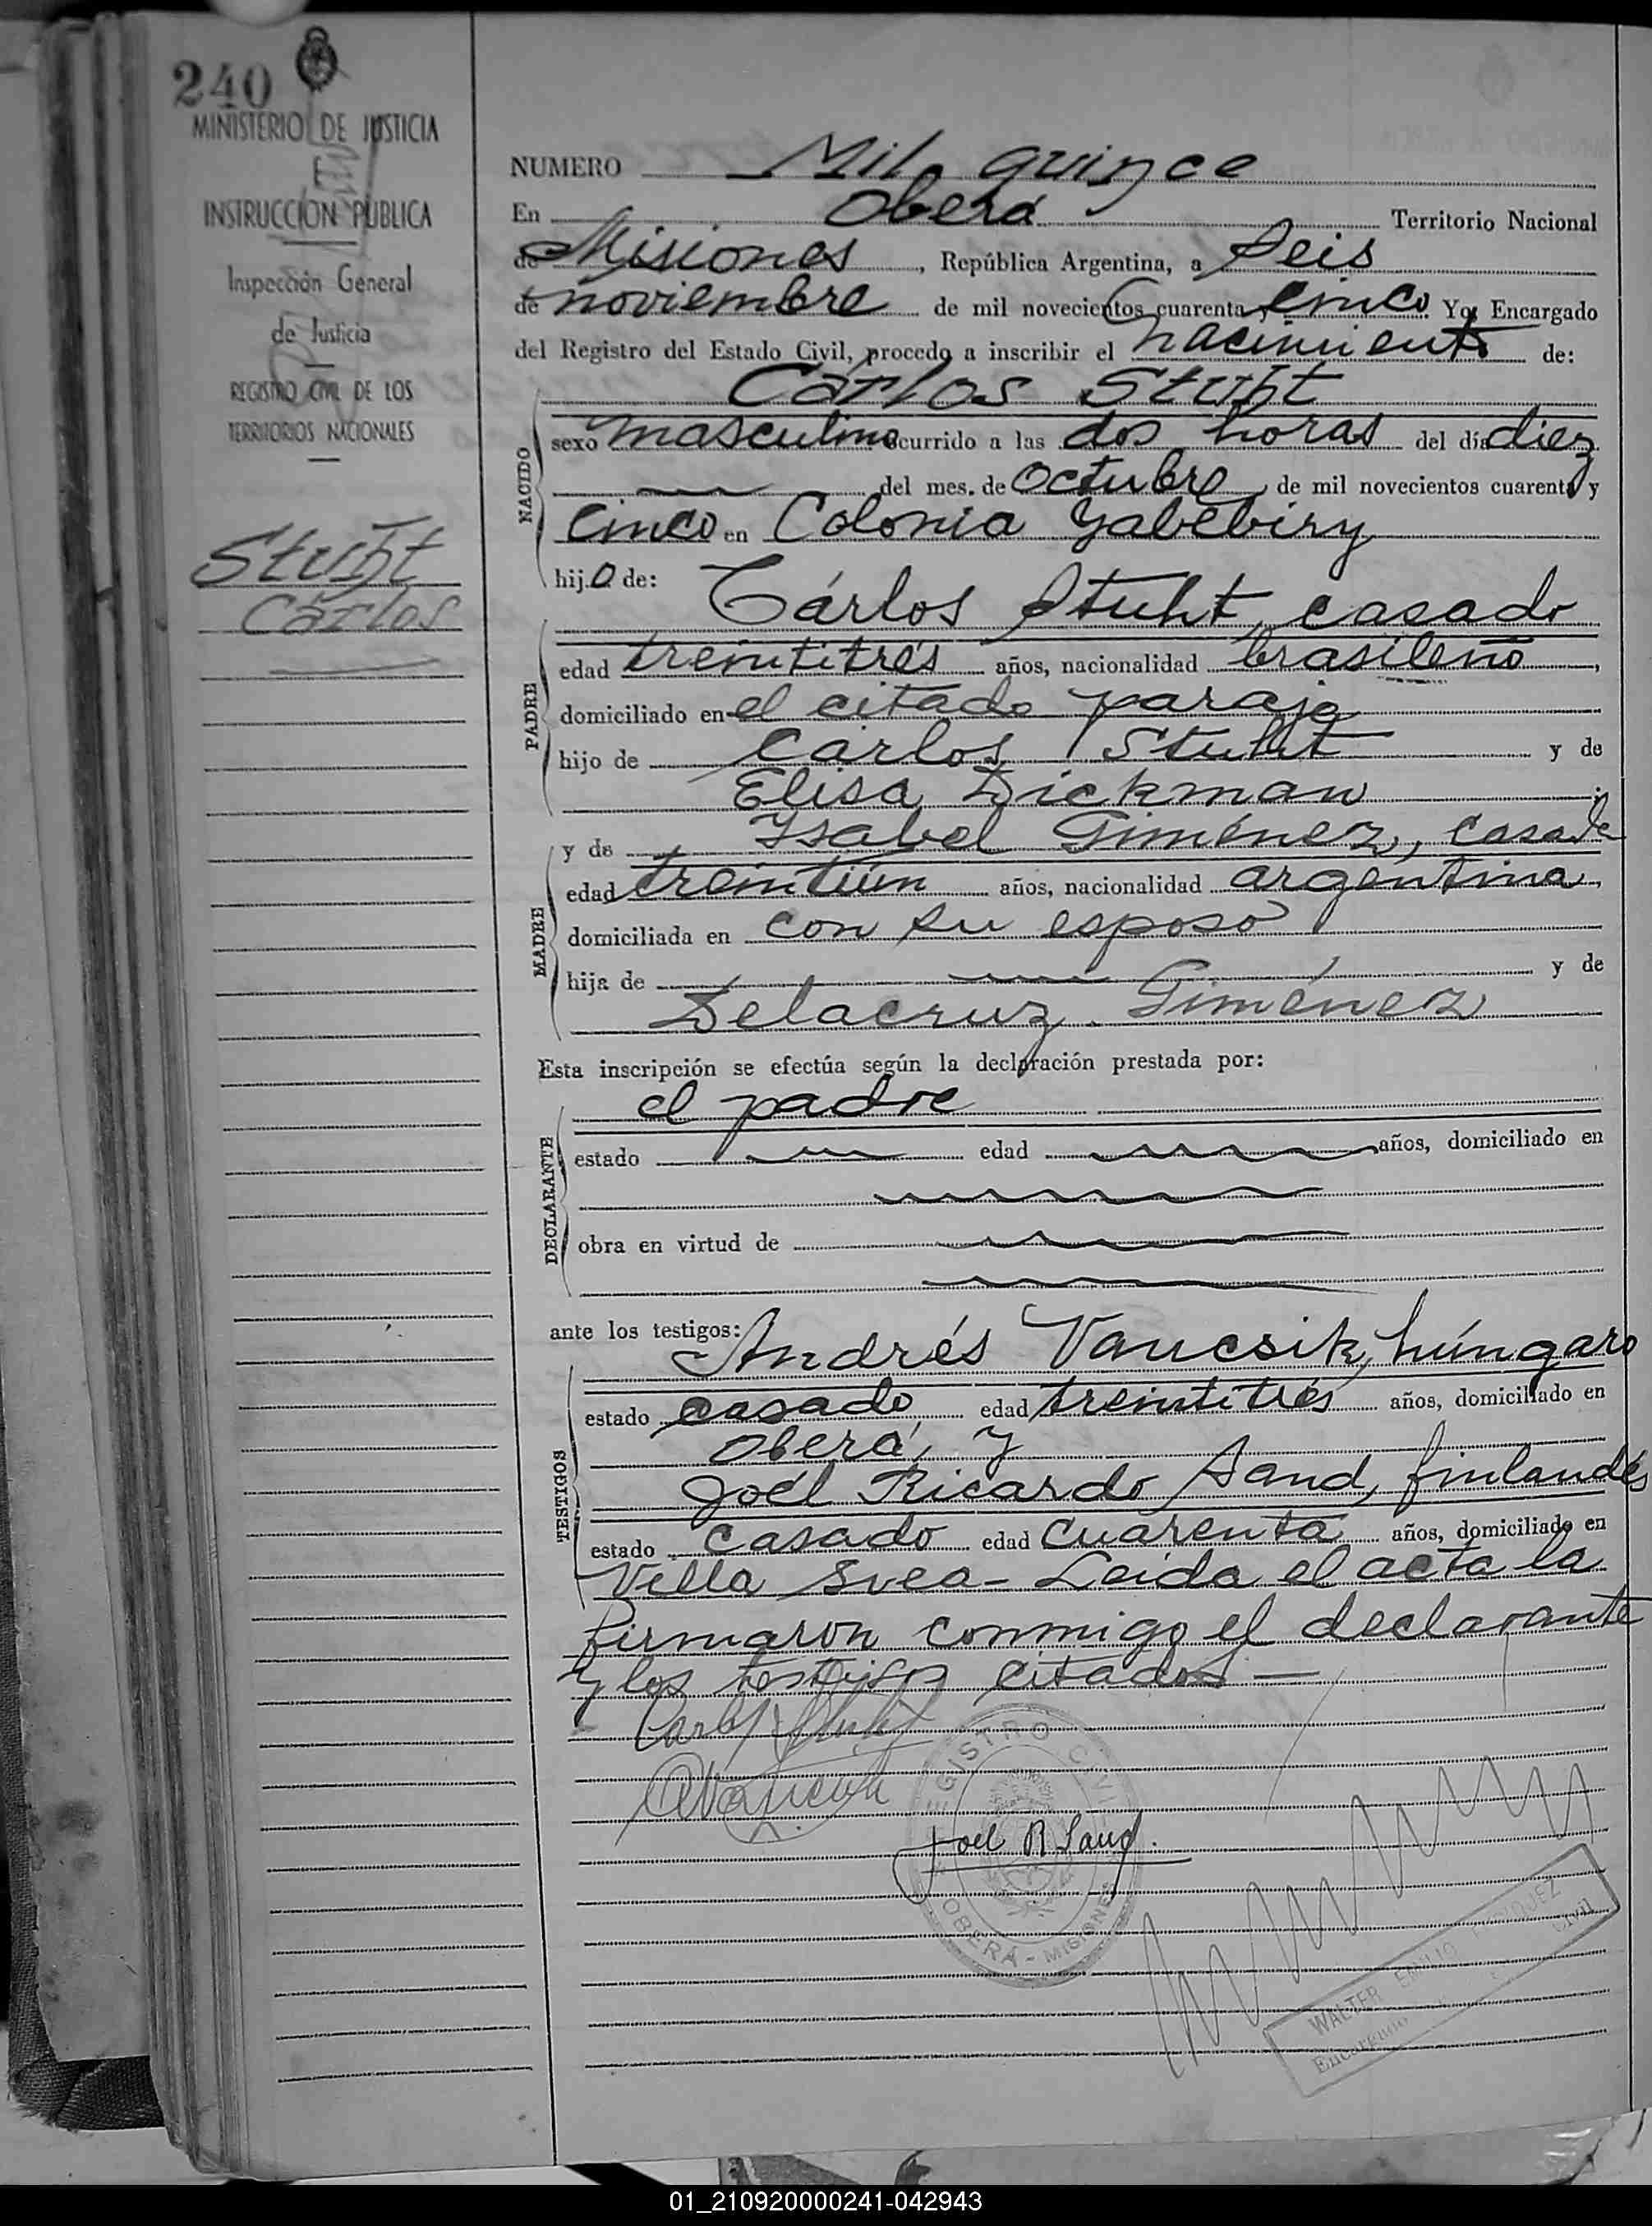 240
MINISTERIO DE JUSTICIA
E
INSTRUCCIÓN PÚBLICA
Inspección General
de Justicia
REGISTRO CIVIL DE LOS
TERRITORIOS NACIONALES
Stuht
Cárlos
NUMERO Mil quince
En Oberá Territorio Nacional
de Misiones, República Argentina, a seis
de noviembre de mil novecientos cuarenta y cinco Yo, Encargado
del Registro del Estado Civil, procedo a inscribir el nacimiento de:
Cárlos Stuht
NACIDO
sexo masculino ocurrido a las dos horas del día diez
del mes de Octubre de mil novecientos cuarenta y
cinco en Colonia Yabebiry
hijo de:
Cárlos Stuht, casado
PADRE
edad treintitrés años, nacionalidad brasileño,
domiciliado en el citado paraje
hijo de Carlos Stuht y de
Elisa Dickman
y de Ysabel Giménez, casada
MADRE
edad treintiún años, nacionalidad argentina,
domiciliada en con su esposo
hija de y de
Delacruz Giménez
Esta inscripción se efectúa según la declaración prestada por:
el padre
DECLARANTE
estado edad años, domiciliado en
obra en virtud de
ante los testigos: Andrés Vancsik, húngaro
TESTIGOS
estado casado edad treintitrés años, domiciliado en
Oberá, y
Joél Ricardo Sand, finlandés
estado casado edad cuarenta años, domiciliado en
Villa Svea - Leída el acta la
firmaron conmigo el declarante
y los testigos citados —
Carlos Stuht
AVancsik
REGISTRO CIVIL
Joel R Sand.
OBERÁ - MISIONES
WALTER EMILIO
Encargado Civil
01_210920000241-042943